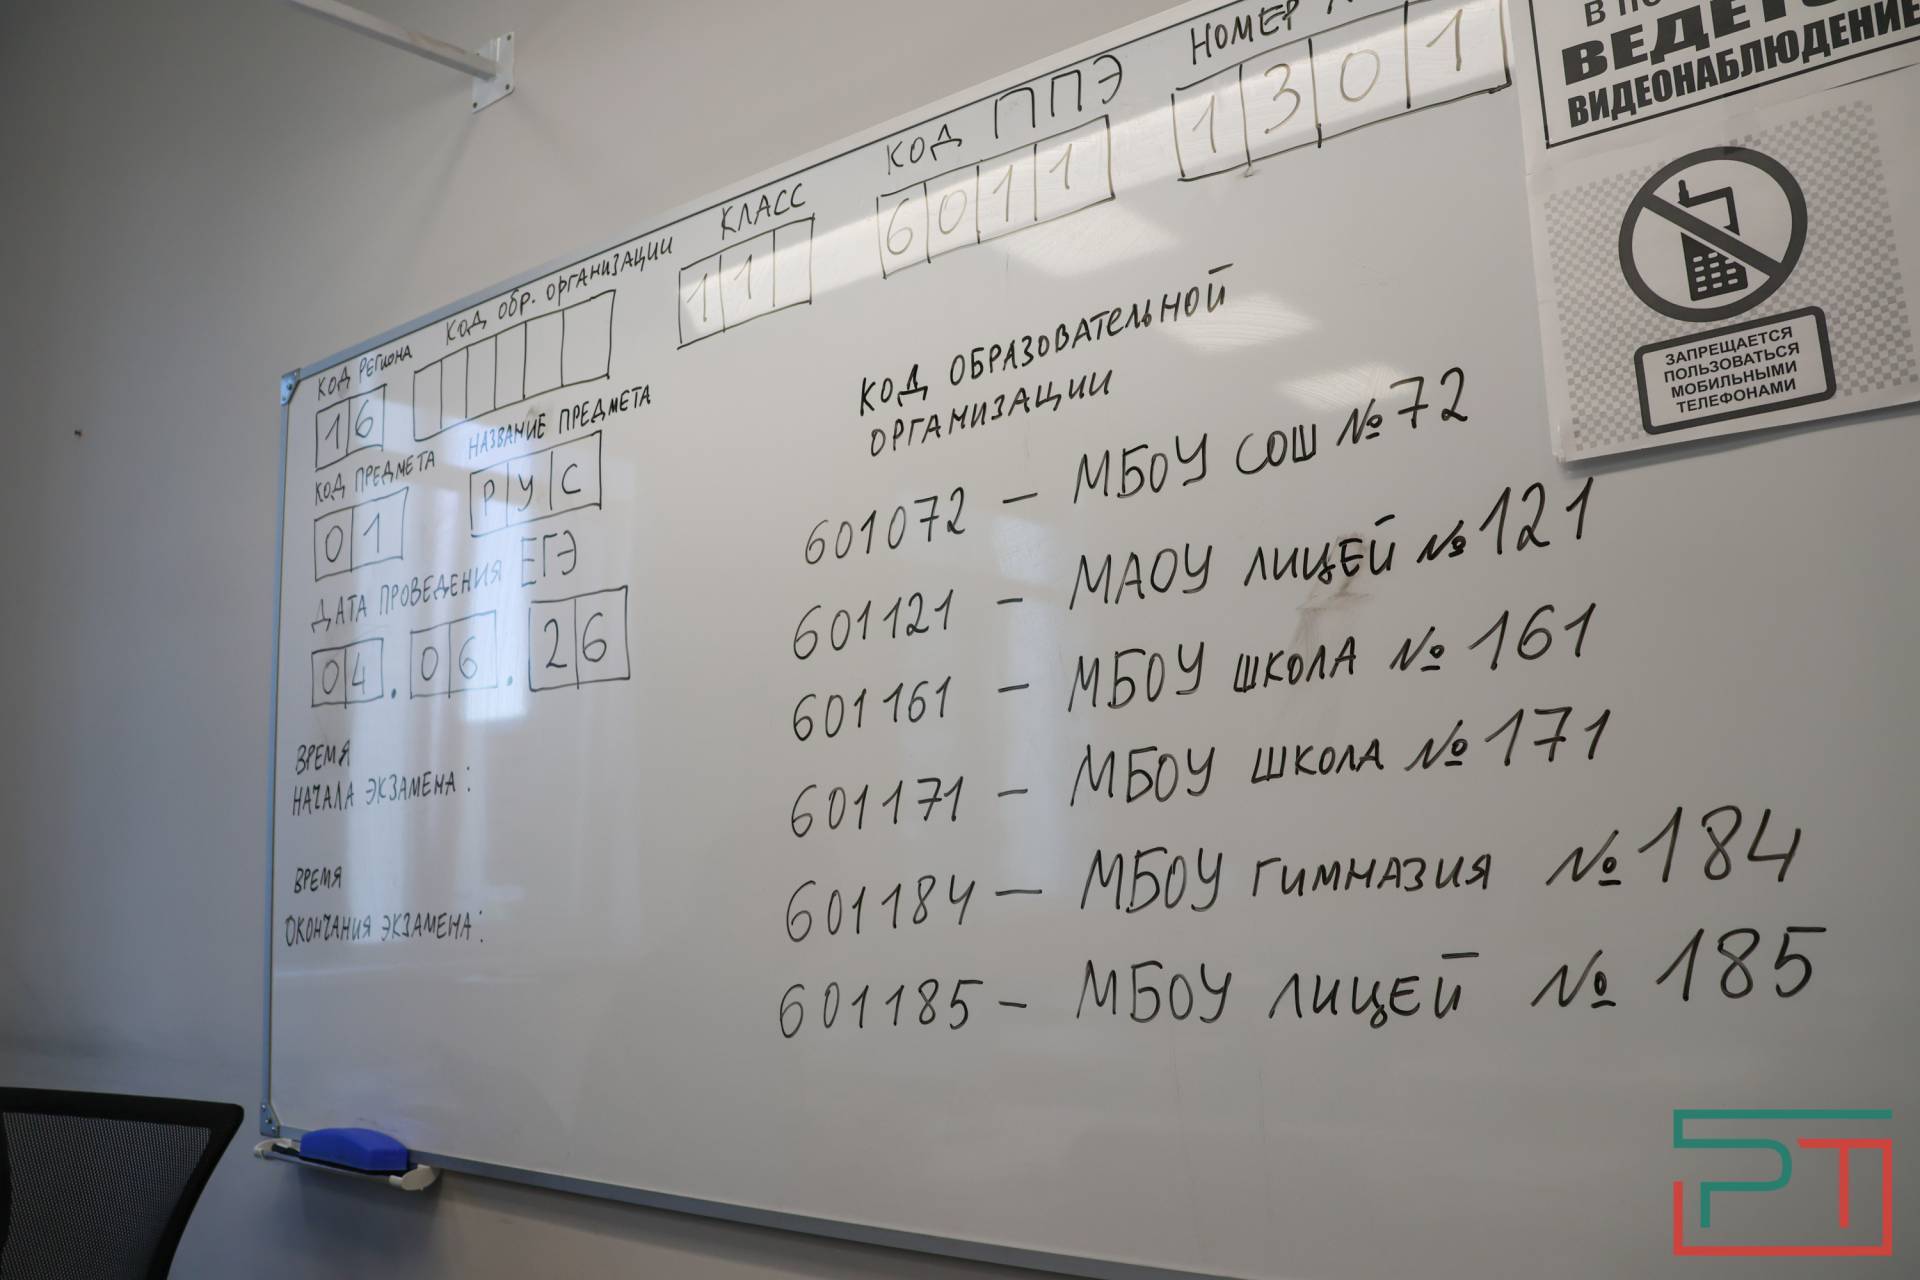 КОД РЕГИОНА КОД ОБР. ОРГАНИЗАЦИИ КЛАСС КОД ППЭ НОМЕР
16 11 6011 1301
КОД ПРЕДМЕТА НАЗВАНИЕ ПРЕДМЕТА
01 РУС
ДАТА ПРОВЕДЕНИЯ ЕГЭ
04.06.26
ВРЕМЯ
НАЧАЛА ЭКЗАМЕНА:
ВРЕМЯ
ОКОНЧАНИЯ ЭКЗАМЕНА:
КОД ОБРАЗОВАТЕЛЬНОЙ
ОРГАНИЗАЦИИ
601072 – МБОУ СОШ №72
601121 – МАОУ ЛИЦЕЙ №121
601161 – МБОУ ШКОЛА №161
601171 – МБОУ ШКОЛА №171
601184 – МБОУ ГИМНАЗИЯ №184
601185 – МБОУ ЛИЦЕЙ №185
В
ВИДЕОНАБЛЮДЕНИЕ
ЗАПРЕЩАЕТСЯ
ПОЛЬЗОВАТЬСЯ
МОБИЛЬНЫМИ
ТЕЛЕФОНАМИ
РТ